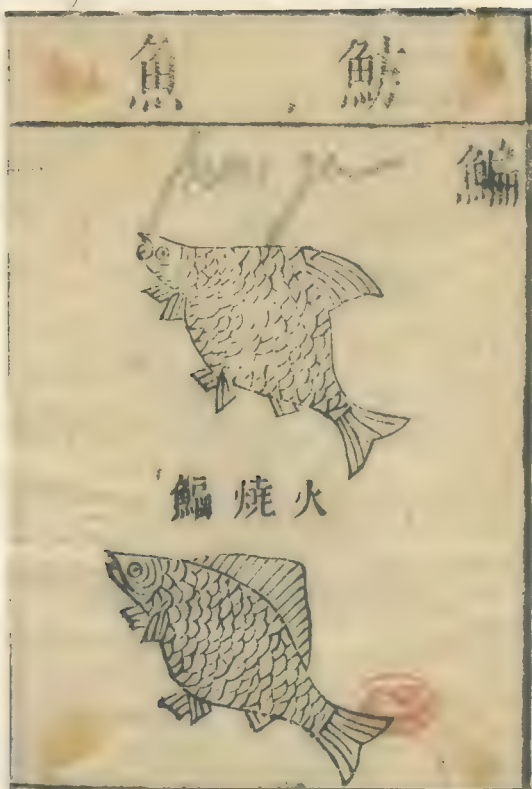 魴魚
鯿
火燒鯿